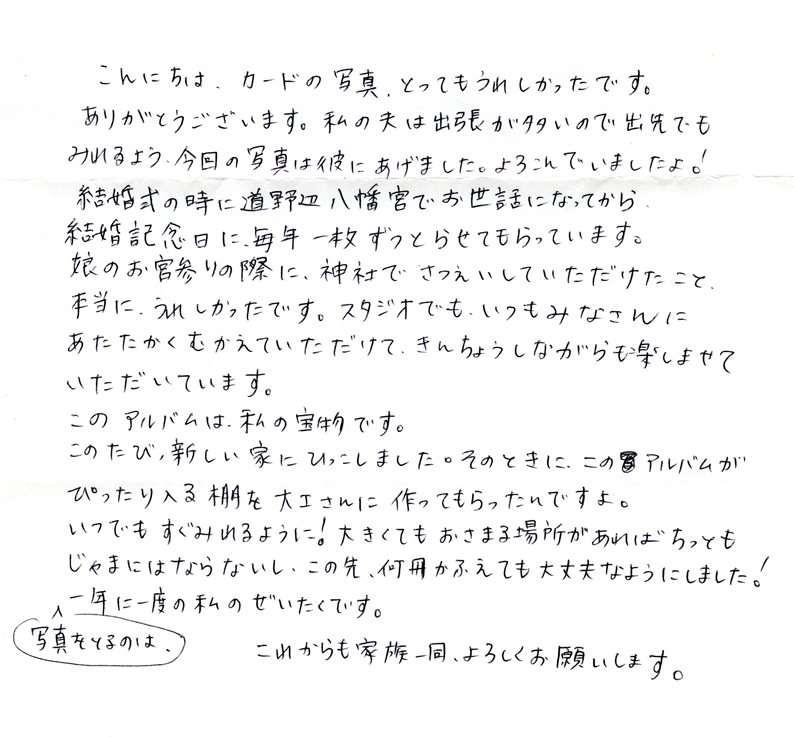 こんにちは、カードの写真、とってもうれしかったです。
ありがとうございます。私の夫は出張が多いので出先でも
みれるよう、今回の写真は彼にあげました。よろこんでいましたよ!
結婚式の時に道野辺八幡宮でお世話になってから、
結婚記念日に、毎年一枚ずつとらせてもらっています。
娘のお宮参りの際に、神社でさつえいしていただけたこと、
本当に、うれしかったです。スタジオでも、いつもみなさんに
あたたかくむかえていただけて、きんちょうしながらも楽しませて
いただいています。
このアルバムは、私の宝物です。
このたび、新しい家にひっこしました。そのときに、このアルバムが
ぴったり入る棚を大工さんに作ってもらったんですよ。
いつでもすぐみれるように!大きくてもおさまる場所があればちっとも
じゃまにはならないし、この先、何冊かふえても大丈夫なようにしました!
写真をとるのは、
一年に一度の私のぜいたくです。
これからも家族一同、よろしくお願いします。